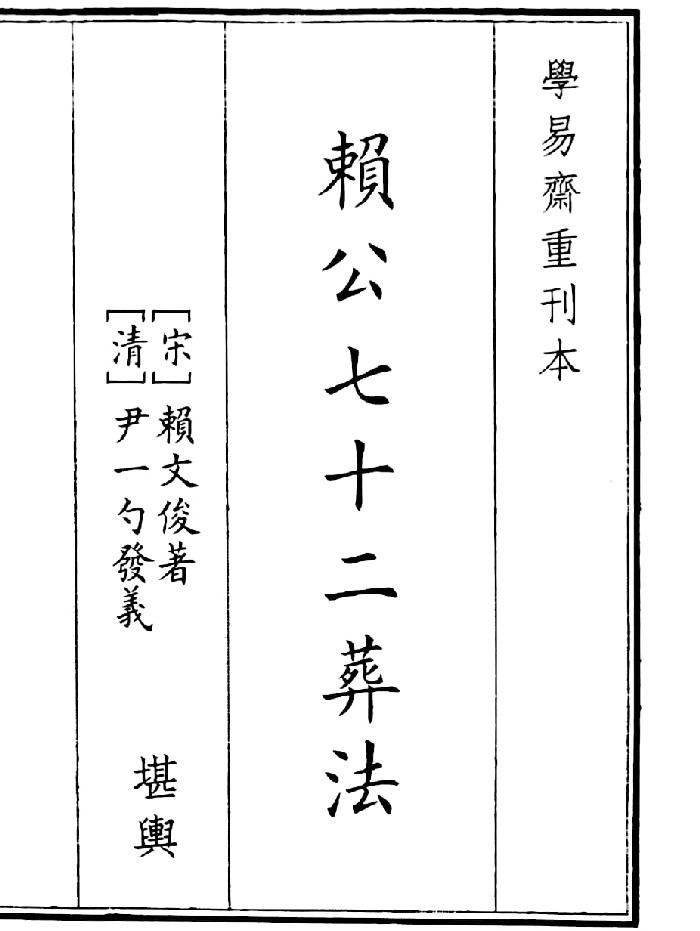 學易齋重刊本
賴公七十二葬法
[宋]賴文俊著
[清]尹一勺發義
堪輿